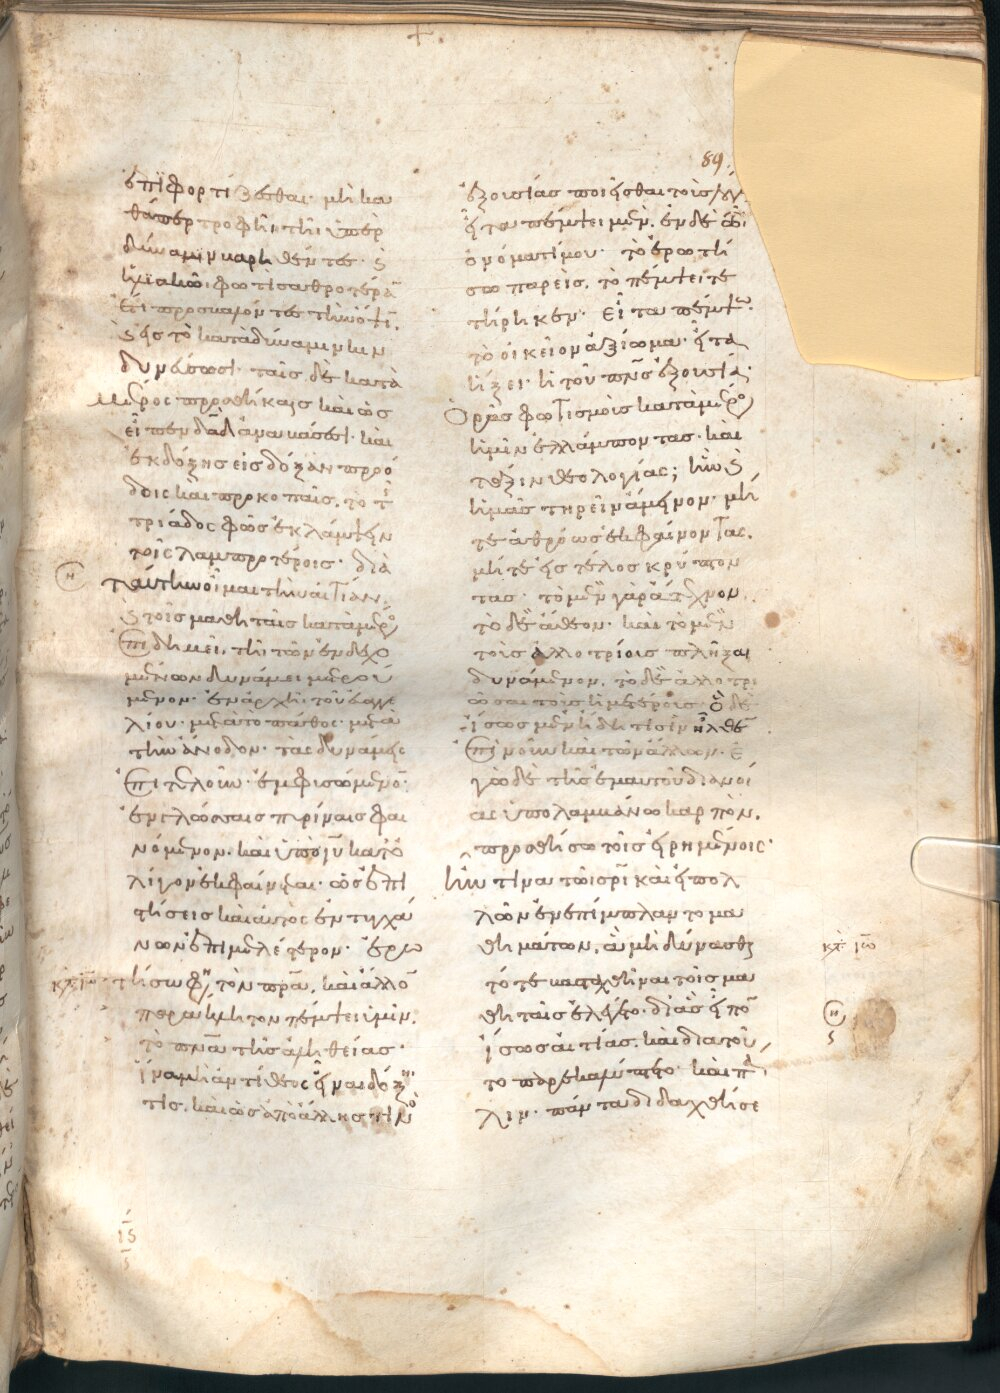 ἐπιφορτίζεσθαι· μὴ κα
θάπερ τροφῆι τῆι ὑπὲρ
δύναμιν βαρηθέντες· ϗ
ἡλιακῶι φωτὶ σαθροτέρα̅
ἔτι προσβαλόντες τὴν ὄψι̅·
ϗ εἰς τὸ κατὰ δύναμιν κιν
δυνεύσωσι· ταῖς δὲ κατὰ
μέρος προσθήκαις καὶ ὡς
εἶπεν δα̅δ̅ ἀναβάσεσι· καὶ
ἐκ δόξης εἰς δόξαν προό
δοις καὶ προκοπαῖς, τὸ τῆς
τριάδος φῶς ἐκλάμψηι
τοῖς λαμπροτέροις· διὰ
ταύτην οἶμαι τὴν αἰτίαν,
ϗ τοῖς μαθηταῖς κατὰ μέρος
ἐπιδημεῖ, τῆι τῶν δεχο
μένων δυνάμει μετρού
μενον· ἐν ἀρχῆι τοῦ εὐαγγε
λίου· μετὰ τὸ πάθος· μετὰ
τὴν ἄνοδον· τὰς δυνάμεις
ἐπιτελοῦν· ἐμφυσώμενο̅·
ἐν γλώσσαις πυρίναις φαι
νόμενον· καὶ ὑπὸ ι̅υ̅ κατ ὀ
λίγον ἐκφαίνεται· ὡς ἐπι
στήσεις καὶ αὐτὸς ἐντυγχά
νων ἐπιμελέστερον· ἐρω
κτ ιω τήσω φη, τὸν πρ̅α̅, καὶ ἄλλο̅
παράκλητον πέμψει ὑμῖν,
τὸ πν̅α̅ τῆς ἀληθείας·
ἵνα μὴ ἀντίθεος εἶναι δόξηι
τις, καὶ ὡς ἀπὸ ἄλλης τινὸ
ις
89
ἐξουσίας ποιεῖσθαι τοὺς λόγ
εἶτα πέμψει μὲν, ἐν δὲ τῶι
ὀνόματί μου· τὸ ἐρωτή
σω παρεὶς, τὸ πέμψει τε
τήρηκεν· εἶτα πέμψω·
τὸ οἰκεῖον ἀξίωμα· εἶτα
ἥξει· ἡ τοῦ πν̅ς̅ ἐξουσία·
Ὁρᾶς φωτισμοὺς κατὰ μέρο
ἡμῖν ἐλλάμποντας· καὶ
τάξιν θεολογίας; ἣν ϗ
ἡμᾶς τηρεῖν ἄμεινον· μή
τε ἀθρόως ἐκφαίνοντας,
μήτε εἰς τέλος κρύπτον
τας· τὸ μὲν γὰρ ἄτεχνον,
τὸ δὲ ἄθεον· καὶ τὸ μὲν
τοὺς ἀλλοτρίους πλῆξαι
δυνάμενον, τὸ δὲ ἀλλοτρι
ῶσαι τοὺς ἡμετέρους· ὃ δὲ
ἴσως μὲν ἤδη τισὶν ἦλθε̅
ἐπὶ νοῦν καὶ τῶν ἄλλων· ἐ
γὼ δὲ τῆς ἐμαυτοῦ διανοί
ας ὑπολαμβάνω καρπὸν,
προσθήσω τοῖς εἰρημένοις·
ἦν τινα τῶι σρ̅ι̅ καὶ εἰ πολ
λῶν ἐνεπίμπλαντο μα
θημάτων, ἃ μὴ δύνασθαι κτ ιω
τότε βασταχθῆναι τοῖς μα
θηταῖς ἐλέγετο· διὰς εἶπο̅
ἴσως αἰτίας, καὶ διὰ τοῦ
το παρεκαλύπτετο· καὶ πά
λιν· πάντα διδαχθήσε